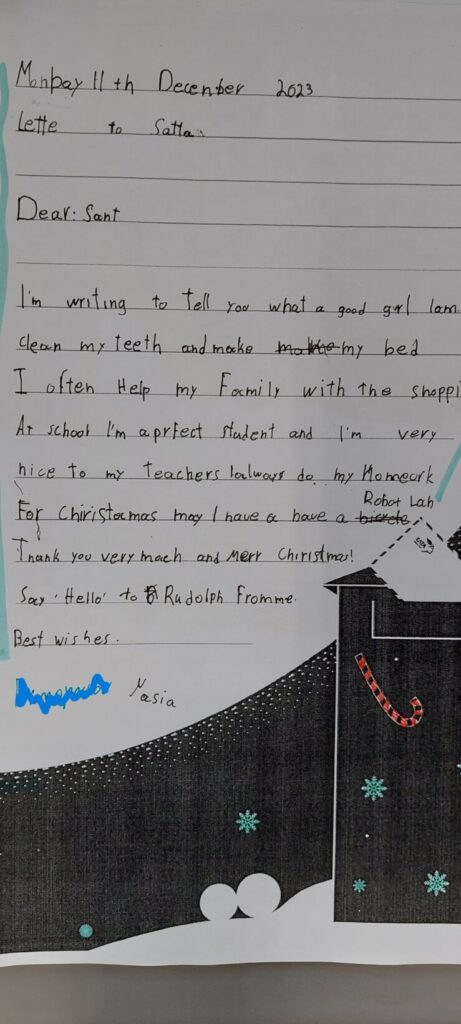 Monbay 11th December 2023
Lette to Satta
Dear: Sant
I'm writing to tell you what a good gurl Iam
clean my teeth and make my bed
I often Help my Family with the shoppi
At school I'm a prfect student and I'm very
nice to my teachers Ialways do my Homeork
Robot Lab
For Chiristacmas may I have a have a bicicle
Thank you very mach and Merr Chiristmas!
Say 'Hello' to Rudolph Fromme.
Best wishes.
Masia